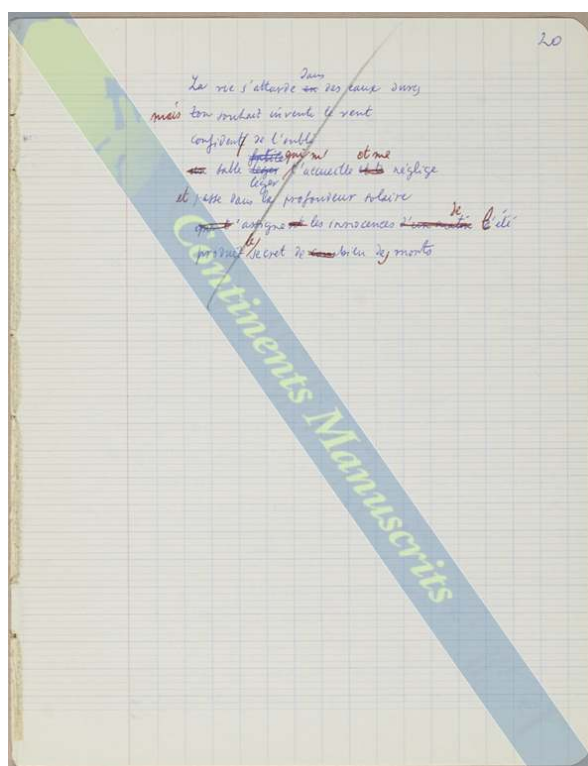 20
dans
La vie s'attarde en des eaux dures
mais ton souhait invente le vent
confident de l'oubli
qui m' et me
sable léger t'accueille néglige
léger
et passe dans la profondeur solaire
de
l'assigne les innocences l'été
le
produit secret de bien des morts
Continents Manuscrits